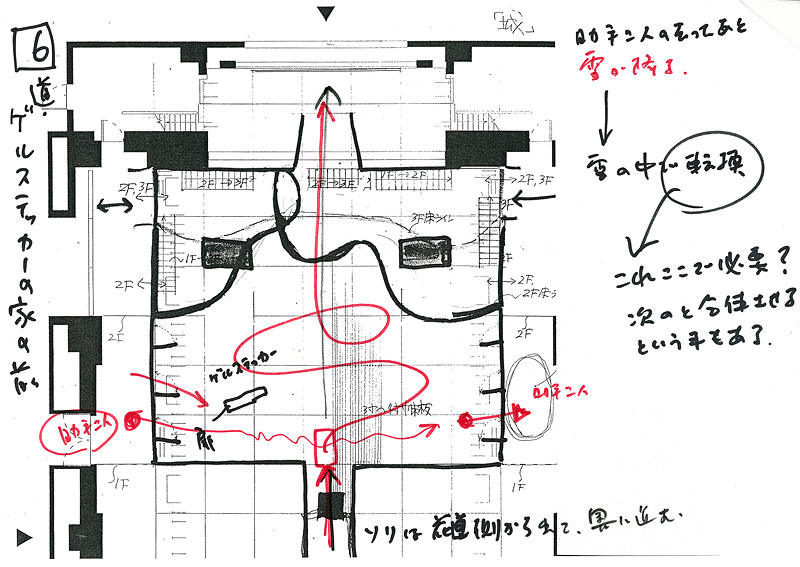 6
道。ゲルステッカーの家の前
「城」
助手二人の去ったあと
雪が降る。
雪の中で転換
これここで必要?
次のと合体させる
という手もある。
2F,3F
2F→3F
2F→3F
1F→2F
2F,3F
3F
3F床ライン
1F
2F
2F
2F床ライン
2F
2F
ゲルステッカー
助手二人
助手二人
扉
1F
1F
ソリは花道側から出て、奥に進む。